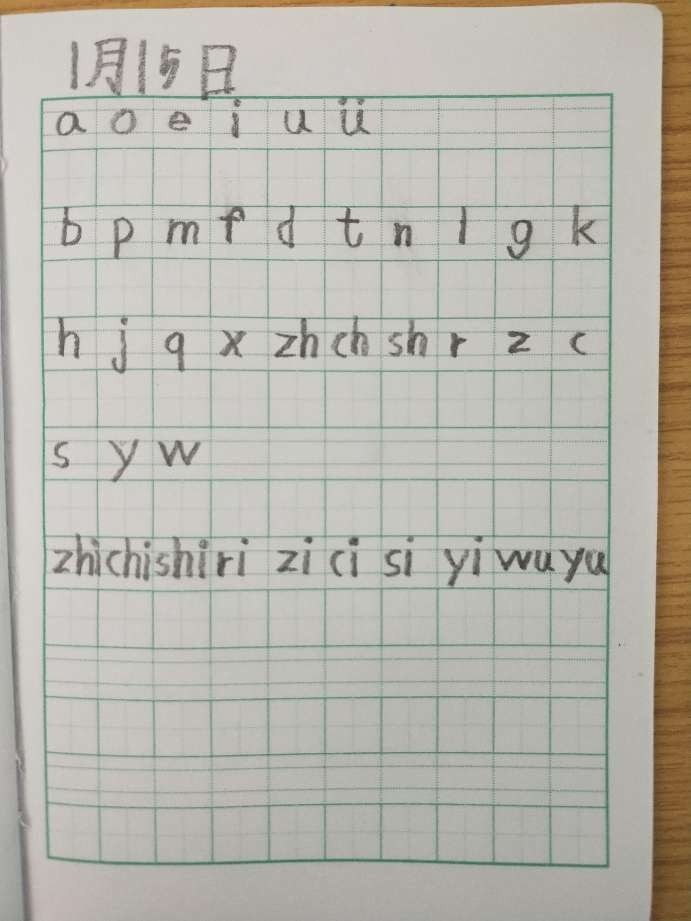 1月15日
a o e i u ü
b p m f d t n l g k
h j q x zh ch sh r z c
s y w
zhi chi shi ri zi ci si yi wu yu